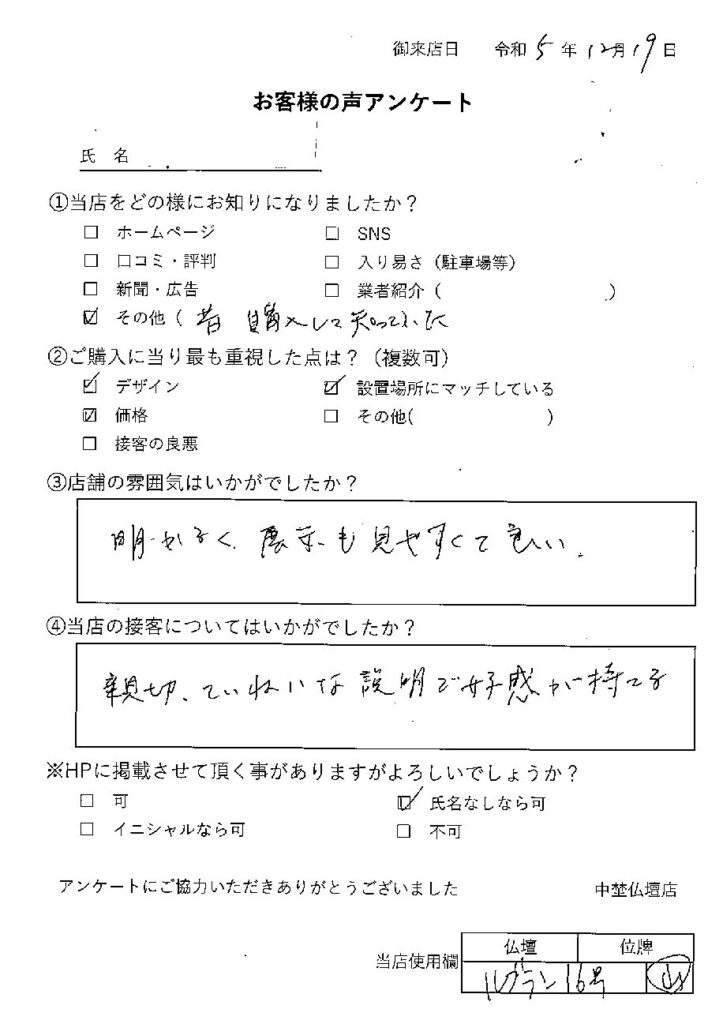 御来店日 令和 5 年 12 月 19 日
お客様の声アンケート
氏 名
①当店をどの様にお知りになりましたか？
□ ホームページ □ SNS
□ 口コミ・評判 □ 入り易さ（駐車場等）
□ 新聞・広告 □ 業者紹介（ ）
☑ その他（ 昔 購入して知っていた
②ご購入に当り最も重視した点は？（複数可）
☑ デザイン ☑ 設置場所にマッチしている
☑ 価格 □ その他( )
□ 接客の良悪
③店舗の雰囲気はいかがでしたか？
明かるく、展示も見やすくて良い.
④当店の接客についてはいかがでしたか？
親切、ていねいな説明で好感が持てる
※HPに掲載させて頂く事がありますがよろしいでしょうか？
□ 可 ☑ 氏名なしなら可
□ イニシャルなら可 □ 不可
アンケートにご協力いただきありがとうございました 中埜仏壇店
仏壇 位牌
当店使用欄 ルグラン16号